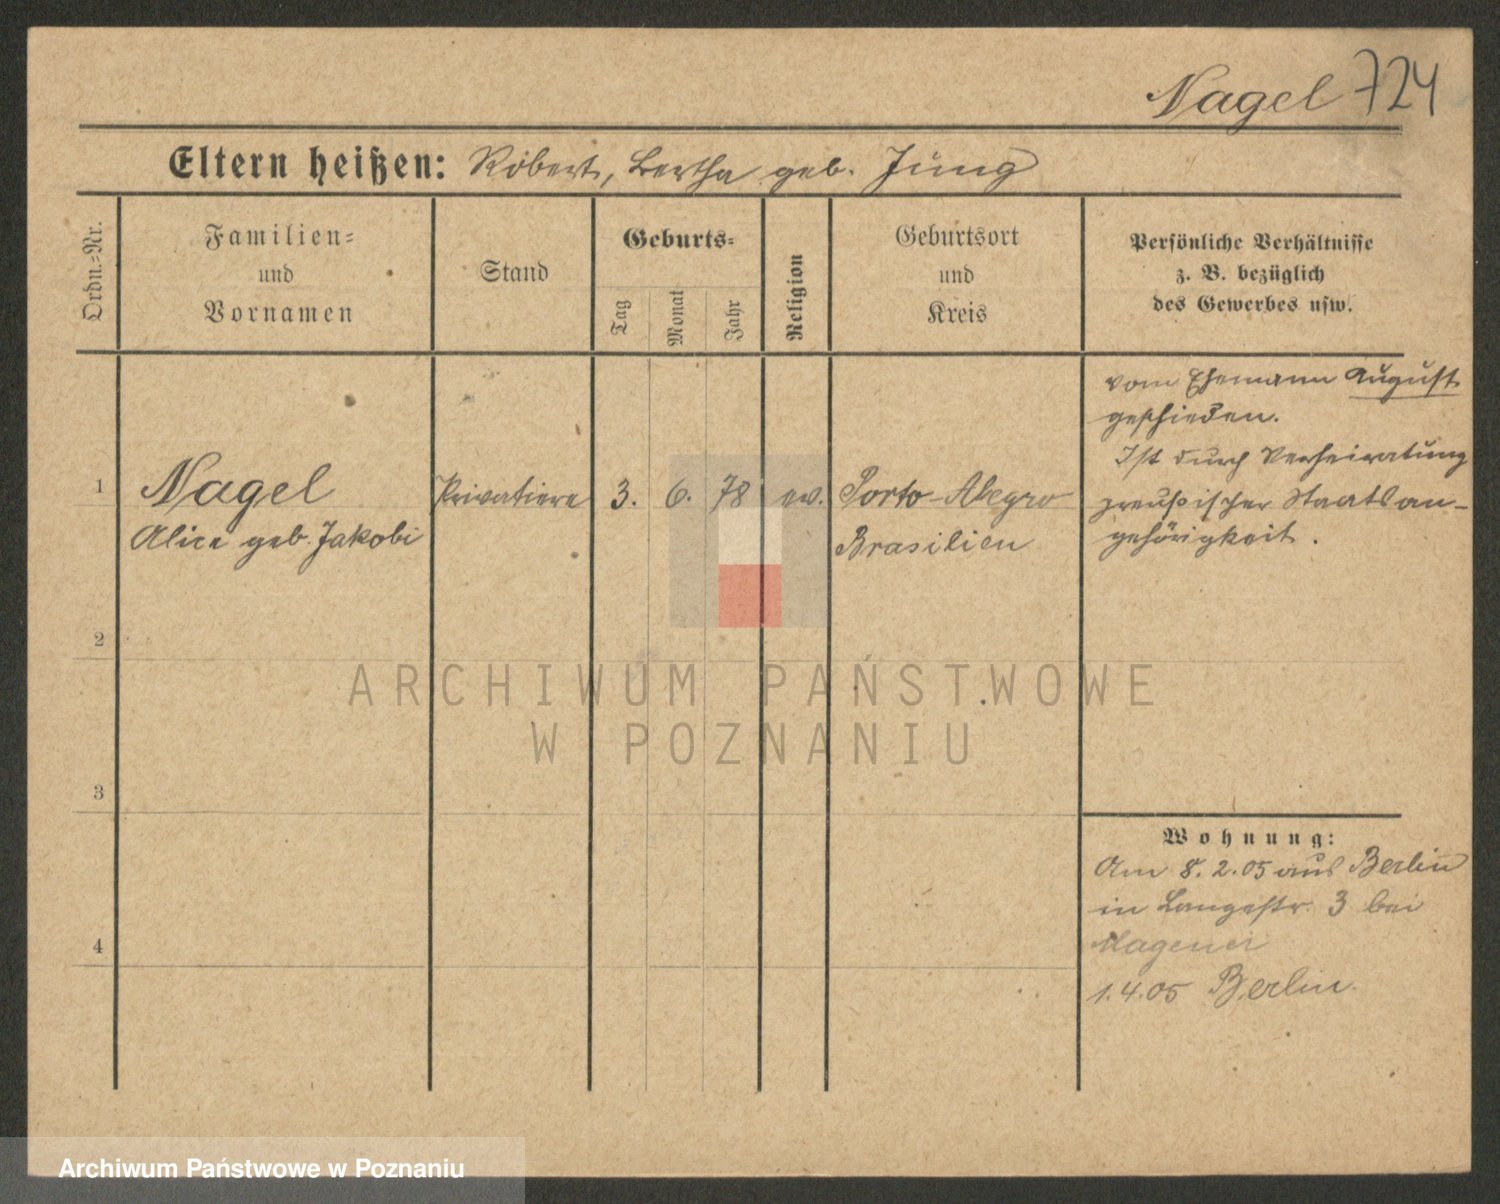 Nagel 724
Eltern heißen: Robert, Bertha geb. Jung
Ordn.=Nr.
Familien=
und
Vornamen
Stand
Geburts=
Tag
Monat
Jahr
Religion
Geburtsort
und
Kreis
Persönliche Verhältnisse
z. B. bezüglich
des Gewerbes usw.
1
Nagel
Alice geb. Jakobi
Privatiere
3.
6.
78
ev.
Porto-Alegro
Brasilien
vom Ehemann August
geschieden.
Ist durch Verheiratung
preußischer Staatsan-
gehörigkeit.
2
3
4
Wohnung:
Am 8.2.05 aus Berlin
in Langestr. 3 bei
Wagener
1.4.05 Berlin.
ARCHIWUM PAŃSTWOWE
W POZNANIU
Archiwum Państwowe w Poznaniu